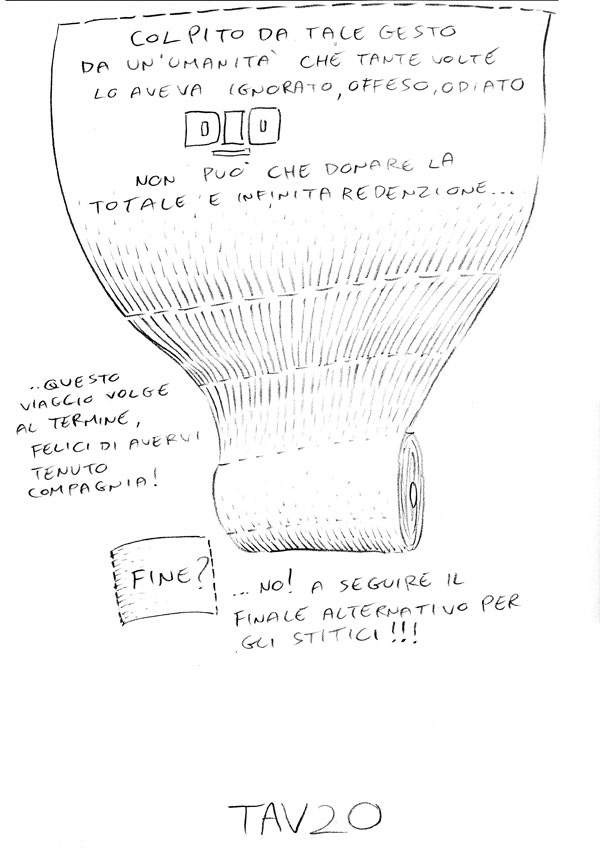 COLPITO DA TALE GESTO
DA UN'UMANITÀ CHE TANTE VOLTE
LO AVEVA IGNORATO, OFFESO, ODIATO
DIO
NON PUÒ CHE DONARE LA
TOTALE E INFINITA REDENZIONE...
..QUESTO
VIAGGIO VOLGE
AL TERMINE,
FELICI DI AVERVI
TENUTO
COMPAGNIA!
FINE?
...NO! A SEGUIRE IL
FINALE ALTERNATIVO PER
GLI STITICI!!!
TAV20